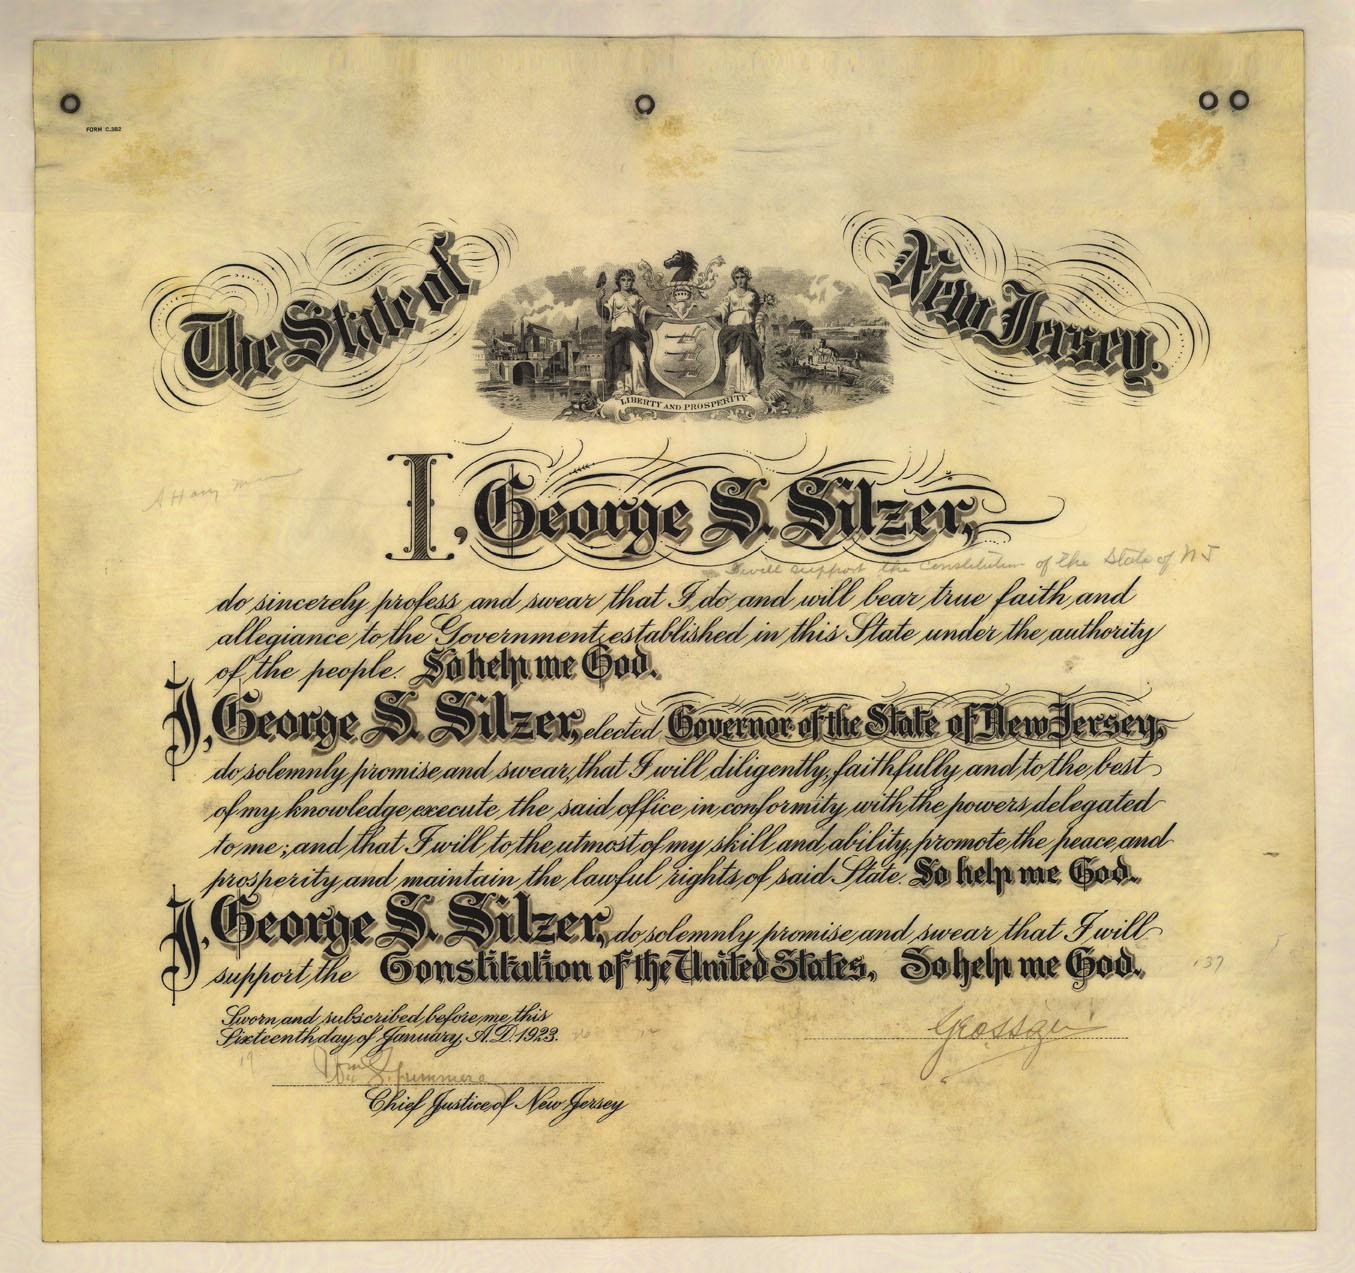 FORM C.382
The State of New Jersey.
LIBERTY AND PROSPERITY
I, George S. Silzer,
I will support the Constitution of the State of N J
do sincerely profess and swear that I do and will bear true faith and
allegiance to the Government established in this State under the authority
of the people. So help me God.
I, George S. Silzer, elected Governor of the State of New Jersey,
do solemnly promise and swear, that I will diligently, faithfully and to the best
of my knowledge execute the said office in conformity with the powers delegated
to me; and that I will to the utmost of my skill and ability, promote the peace and
prosperity and maintain the lawful rights of said State. So help me God.
I, George S. Silzer, do solemnly promise and swear that I will
support the Constitution of the United States, So help me God.
137
Sworn and subscribed before me, this
Sixteenth day of January, A.D. 1923.
Geo S Silzer
19
Wm S. Gummere
Chief Justice of New Jersey